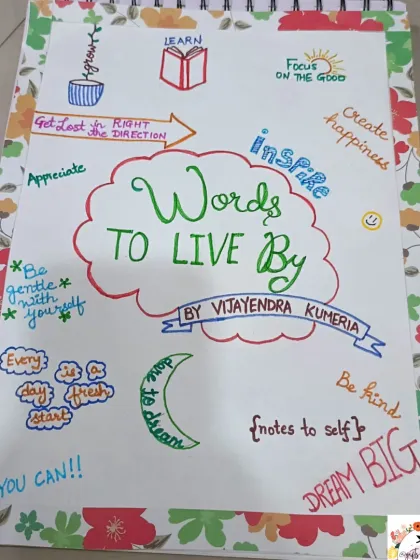 grow
LEARN
Focus
ON THE GOOD
Get Lost in RIGHT
the DIRECTION
create
happiness
inspire
Appreciate
Words
TO LIVE By
BY VIJAYENDRA KUMERIA
Be
gentle
with
yourself
Every
is a
day
fresh
start
dare to dream
Be kind
{notes to self}
YOU CAN!!
DREAM BIG